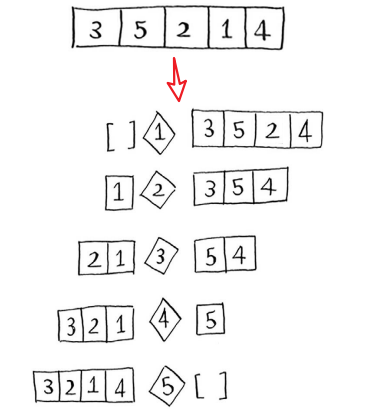 3 5 2 1 4
[ ] 1 3 5 2 4
1 2 3 5 4
2 1 3 5 4
3 2 1 4 5
3 2 1 4 5 [ ]